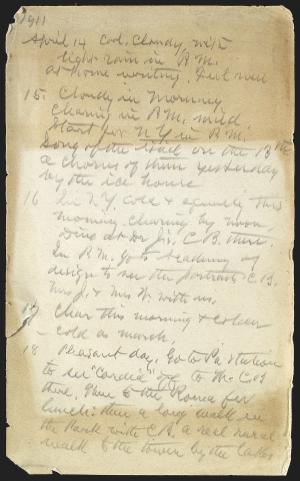 1911
April 14 Cool, Cloudy, with
light rain in P.M.
at home writing. Feel well
15. Cloudy in morning
clearing in P.M. mild.
Start for N Y in P.M.
Song of the toad on the 13th
a chorus of them yesterday
by the ice house
16 In N Y cold & squally this
morning clearing by noon.
Dine at Dr J's, C.B. there.
In P.M. go to Academy of
design to see the portrait C.B.
Mrs J. & Mrs W. with us.
17 Clear this morning & colder
cold as march.
18 Pleasant day. Go to Pa Station
to see "Cordie" off to M. C.B
there. Then to the Roma for
lunch: then a long walk in
the Park with C.B. a real rural
walk to the tower by the lakes